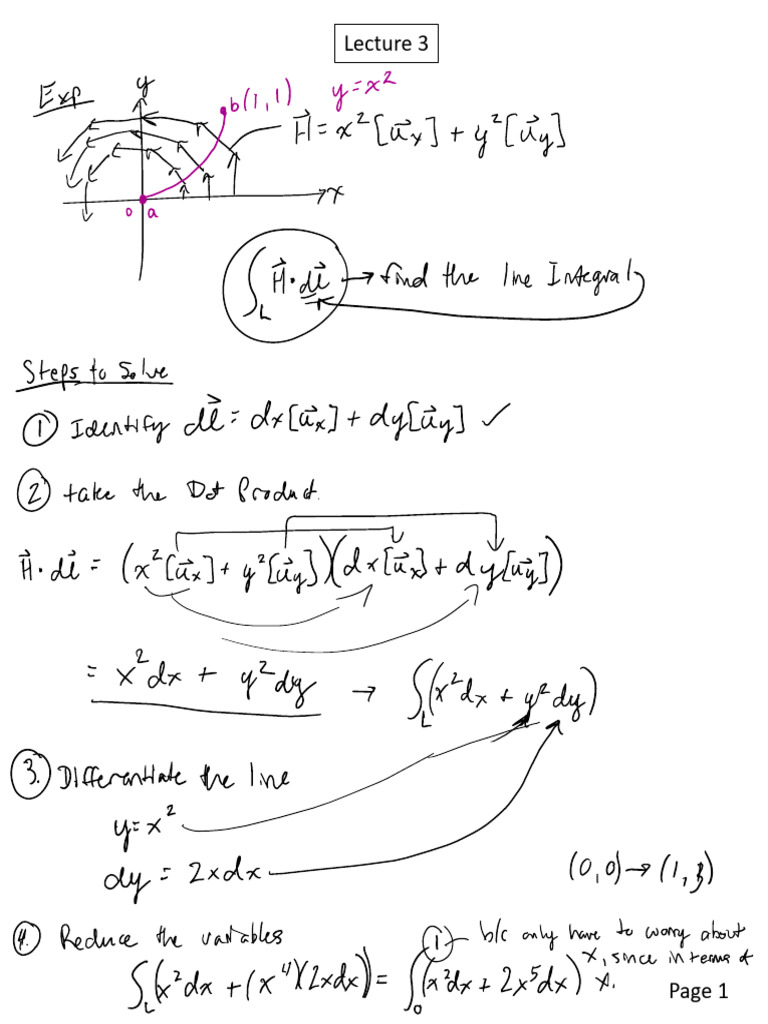 Lecture 3
Exp
y
b(1,1)
y=x²
H⃗ = x²[u⃗x] + y²[u⃗y]
x
0 a
∫L H⃗·dl⃗ → find the line Integral
Steps to Solve
① Identify dl⃗ = dx[u⃗x] + dy[u⃗y] ✓
② take the Dot Product.
H⃗·dl⃗ = (x²[u⃗x] + y²[u⃗y])(dx[u⃗x] + dy[u⃗y])
= x²dx + y²dy → ∫L(x²dx + y²dy)
③. Differentiate the line
y=x²
dy = 2xdx
(0,0)→(1,1)
④. Reduce the variables
① b/c only have to worry about
x, since in terms of
x.
∫L(x²dx + (x⁴)(2xdx)) = ∫₀¹(x²dx + 2x⁵dx)
Page 1